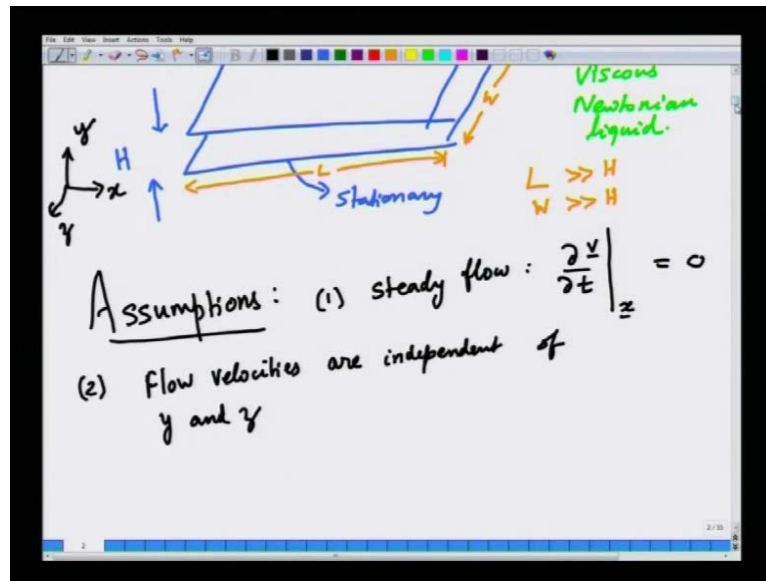 File Edit View Insert Actions Tools Help
Viscous
Newtonian
liquid.
W
y
H
x
L
L >> H
Stationary
W >> H
z
Assumptions: (1) steady flow: ∂v/∂t |x = 0
(2) Flow velocities are independent of
y and z
2/33
2